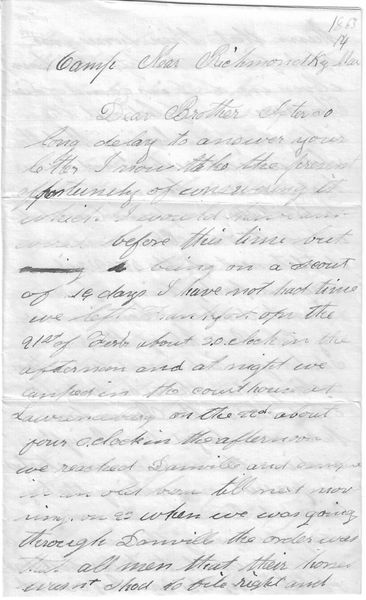 1863
Camp Near Richmond Ky Mar 14
Dear Brother After so
long delay to answer your
letter I now take the present
opportunity of answering it
which I would have
before this time but
being on a scout
of 19 days I have not had time
we left on the
21st of Feb about 2 oclock in the
afternoon and at night we
camped in the court house at
Lawrenceburg on the 22d about
four oclock in the afternoon
we reached Danville and
in an old barn till next mor
ning on 23 when we was going
through Danville the order was
that all men that their horses
wasnt shod to file right and